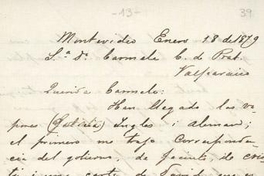 -13-
39
Montevideo Enero 18 de 1879
Sª. Dª. Carmela C. de Prat.
Valparaiso
Querida Carmela:
Han llegado los va-
pores (Galicia) Ingles i Aleman;
el primero me trajo correspon-
cia del gobierno, de Jacinto, de
ti i una carta de David